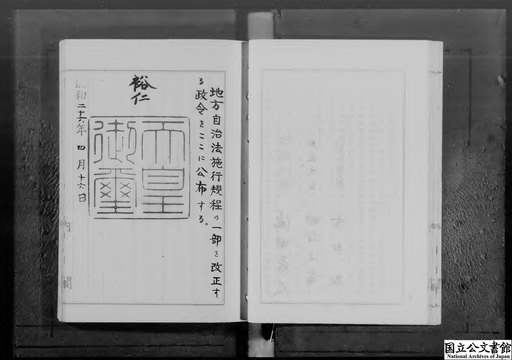 地方自治法施行規程の一部を改正す
る政令をここに公布する。
裕仁
天皇
御璽
昭和二十六年四月十六日
内閣
国立公文書館
National Archives of Japan